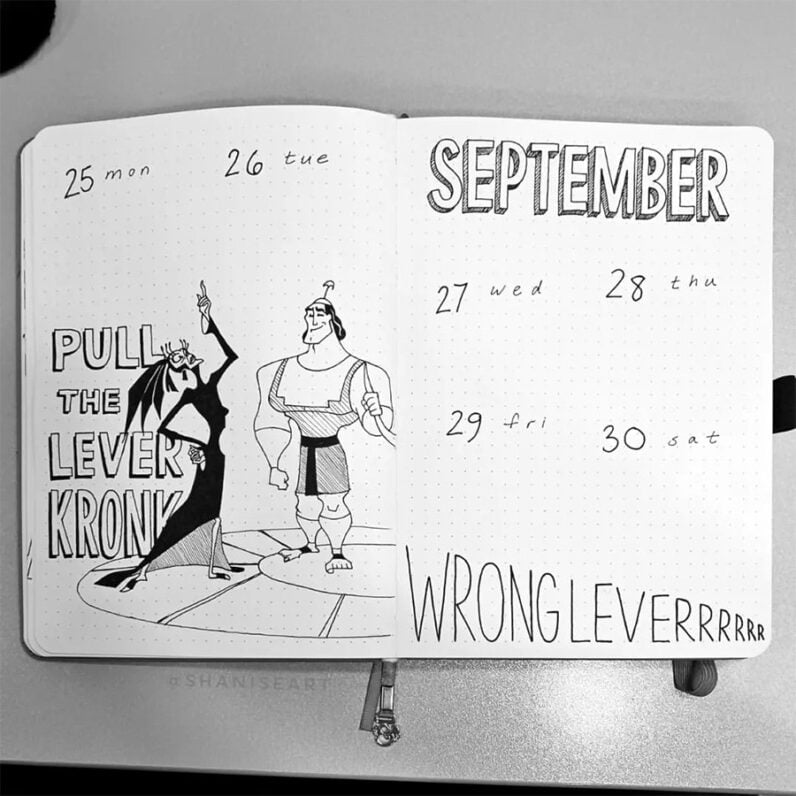 25 mon
26 tue
PULL
THE
LEVER
KRONK
SEPTEMBER
27 wed
28 thu
29 fri
30 sat
WRONG LEVERRRRRR
@SHANISEART